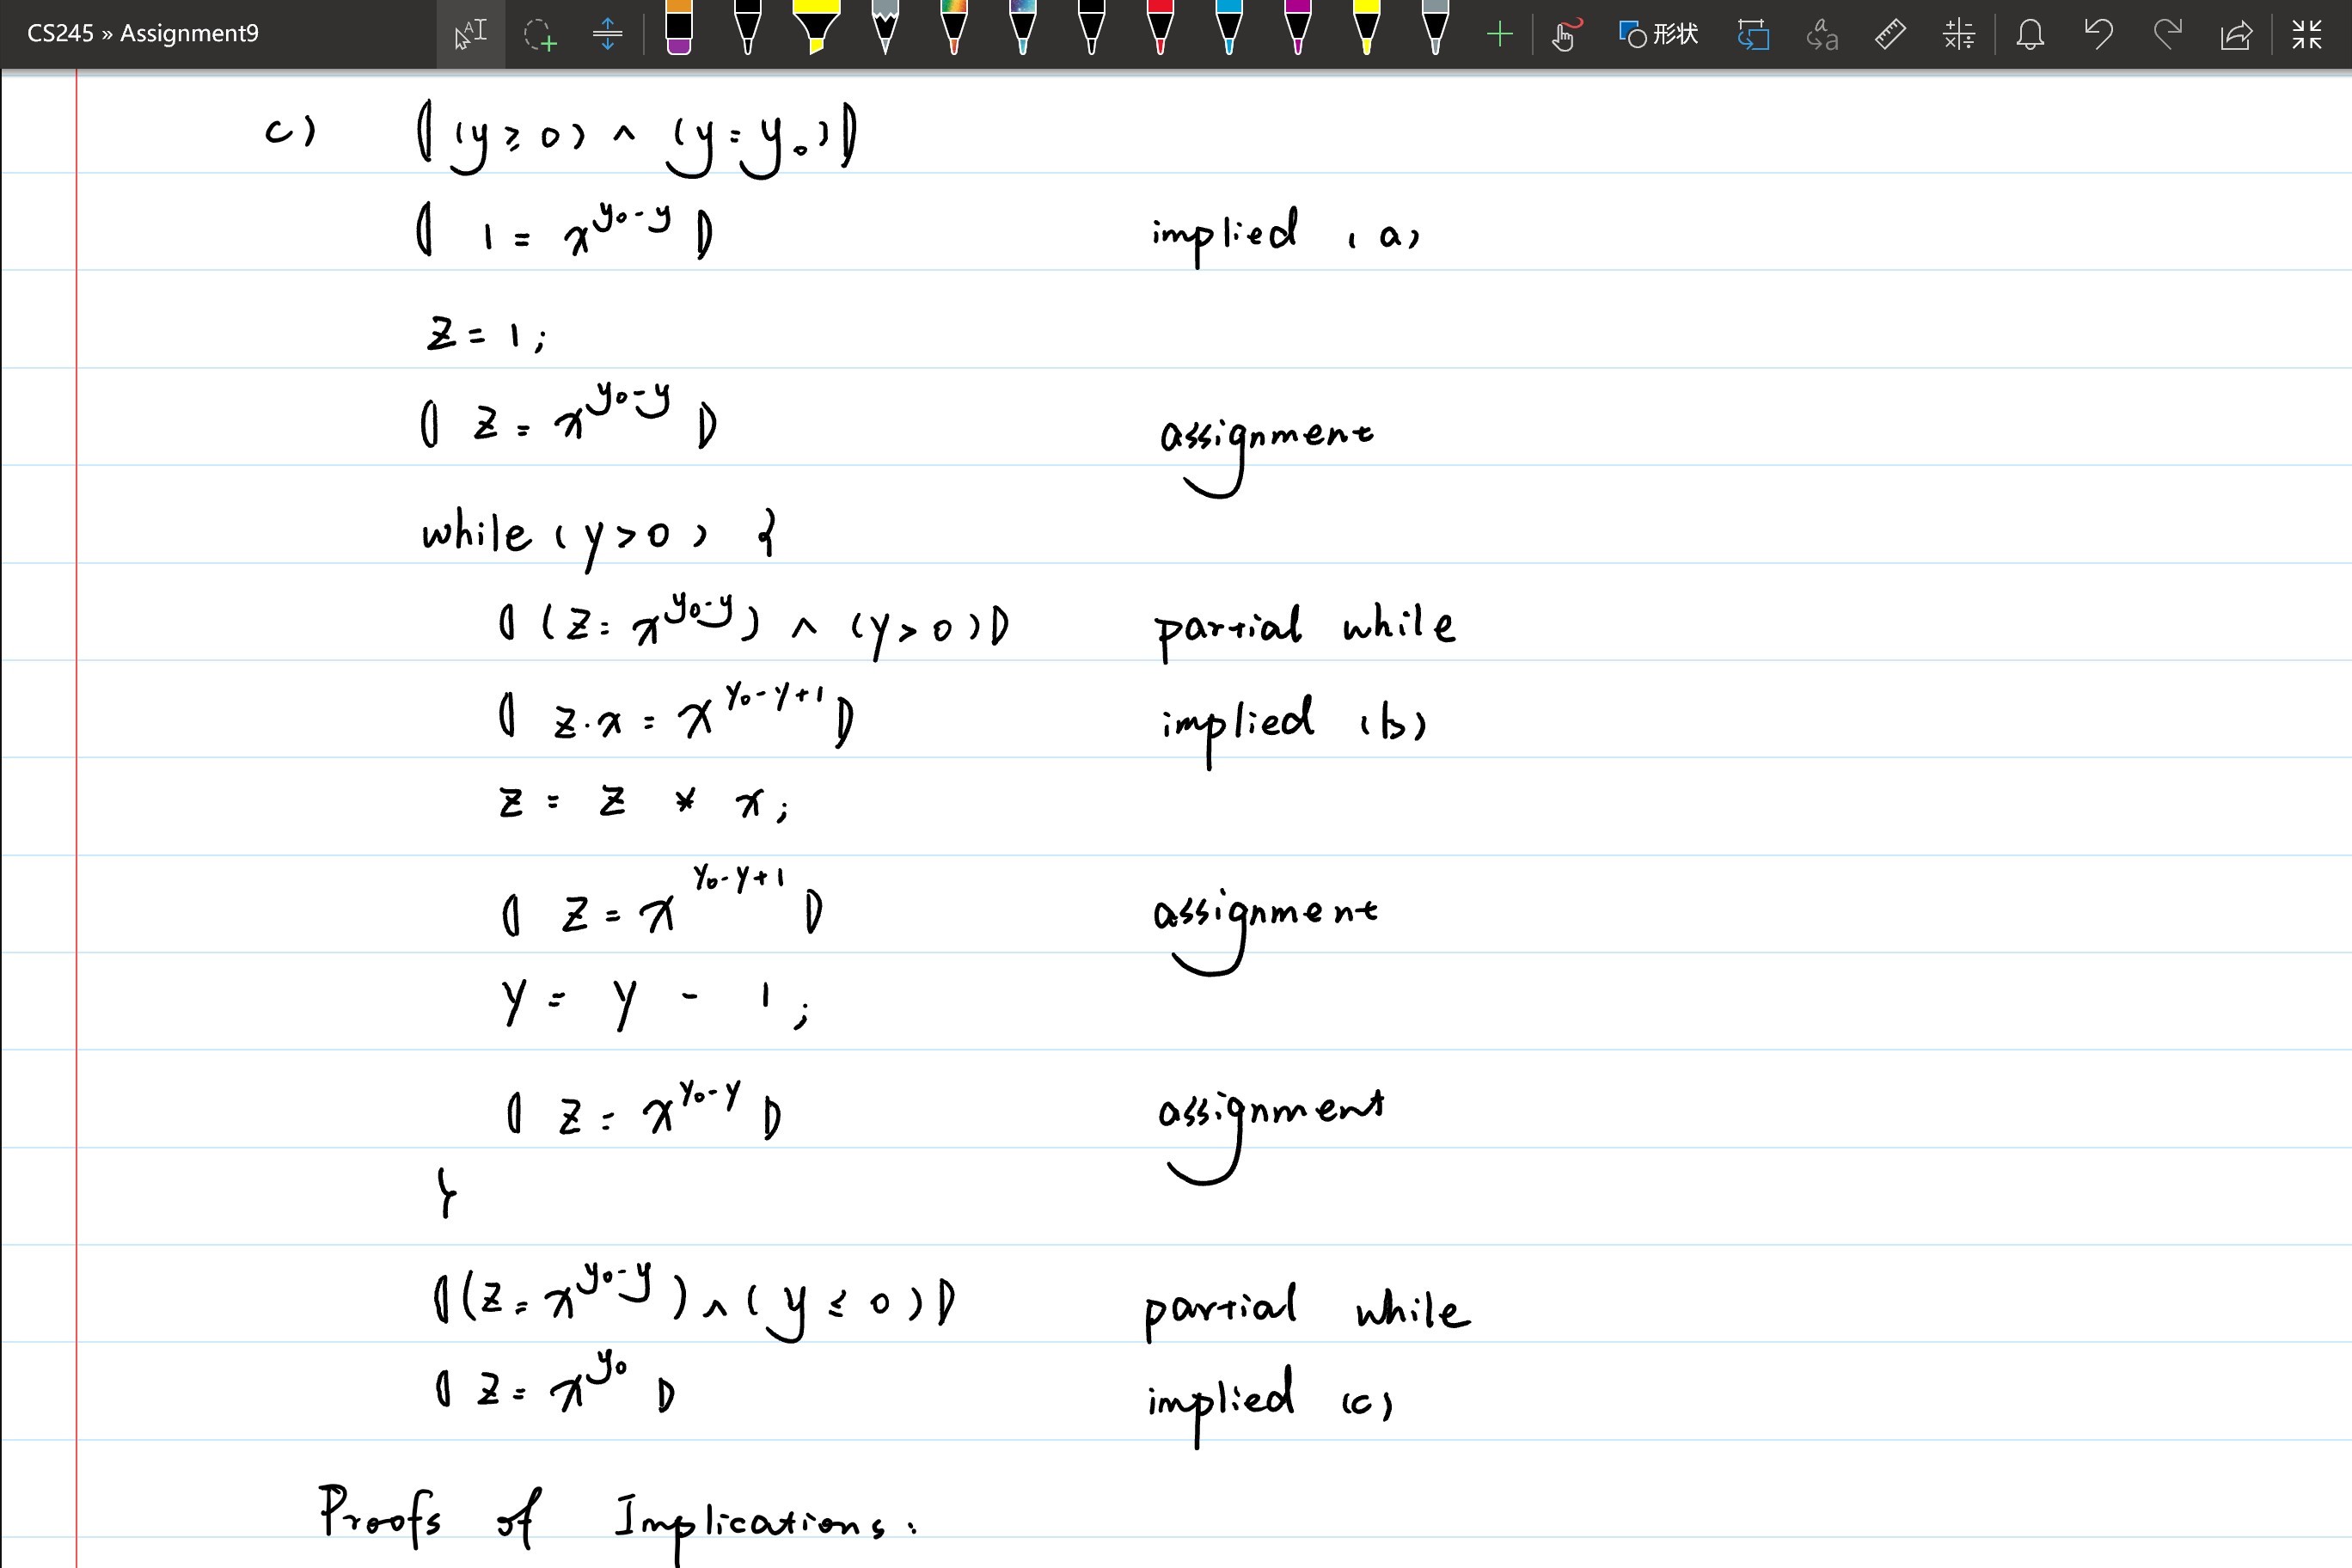 CS245 » Assignment9
形状
c) ⦇(y ≥ 0) ∧ (y = y₀)⦈
⦇ 1 = x^{y₀-y} ⦈ implied (a)
z = 1;
⦇ z = x^{y₀-y} ⦈ assignment
while (y > 0) {
⦇ (z = x^{y₀-y}) ∧ (y > 0) ⦈ partial while
⦇ z·x = x^{y₀-y+1} ⦈ implied (b)
z = z * x;
⦇ z = x^{y₀-y+1} ⦈ assignment
y = y - 1;
⦇ z = x^{y₀-y} ⦈ assignment
}
⦇ (z = x^{y₀-y}) ∧ (y ≤ 0) ⦈ partial while
⦇ z = x^{y₀} ⦈ implied (c)
Proofs of Implications: